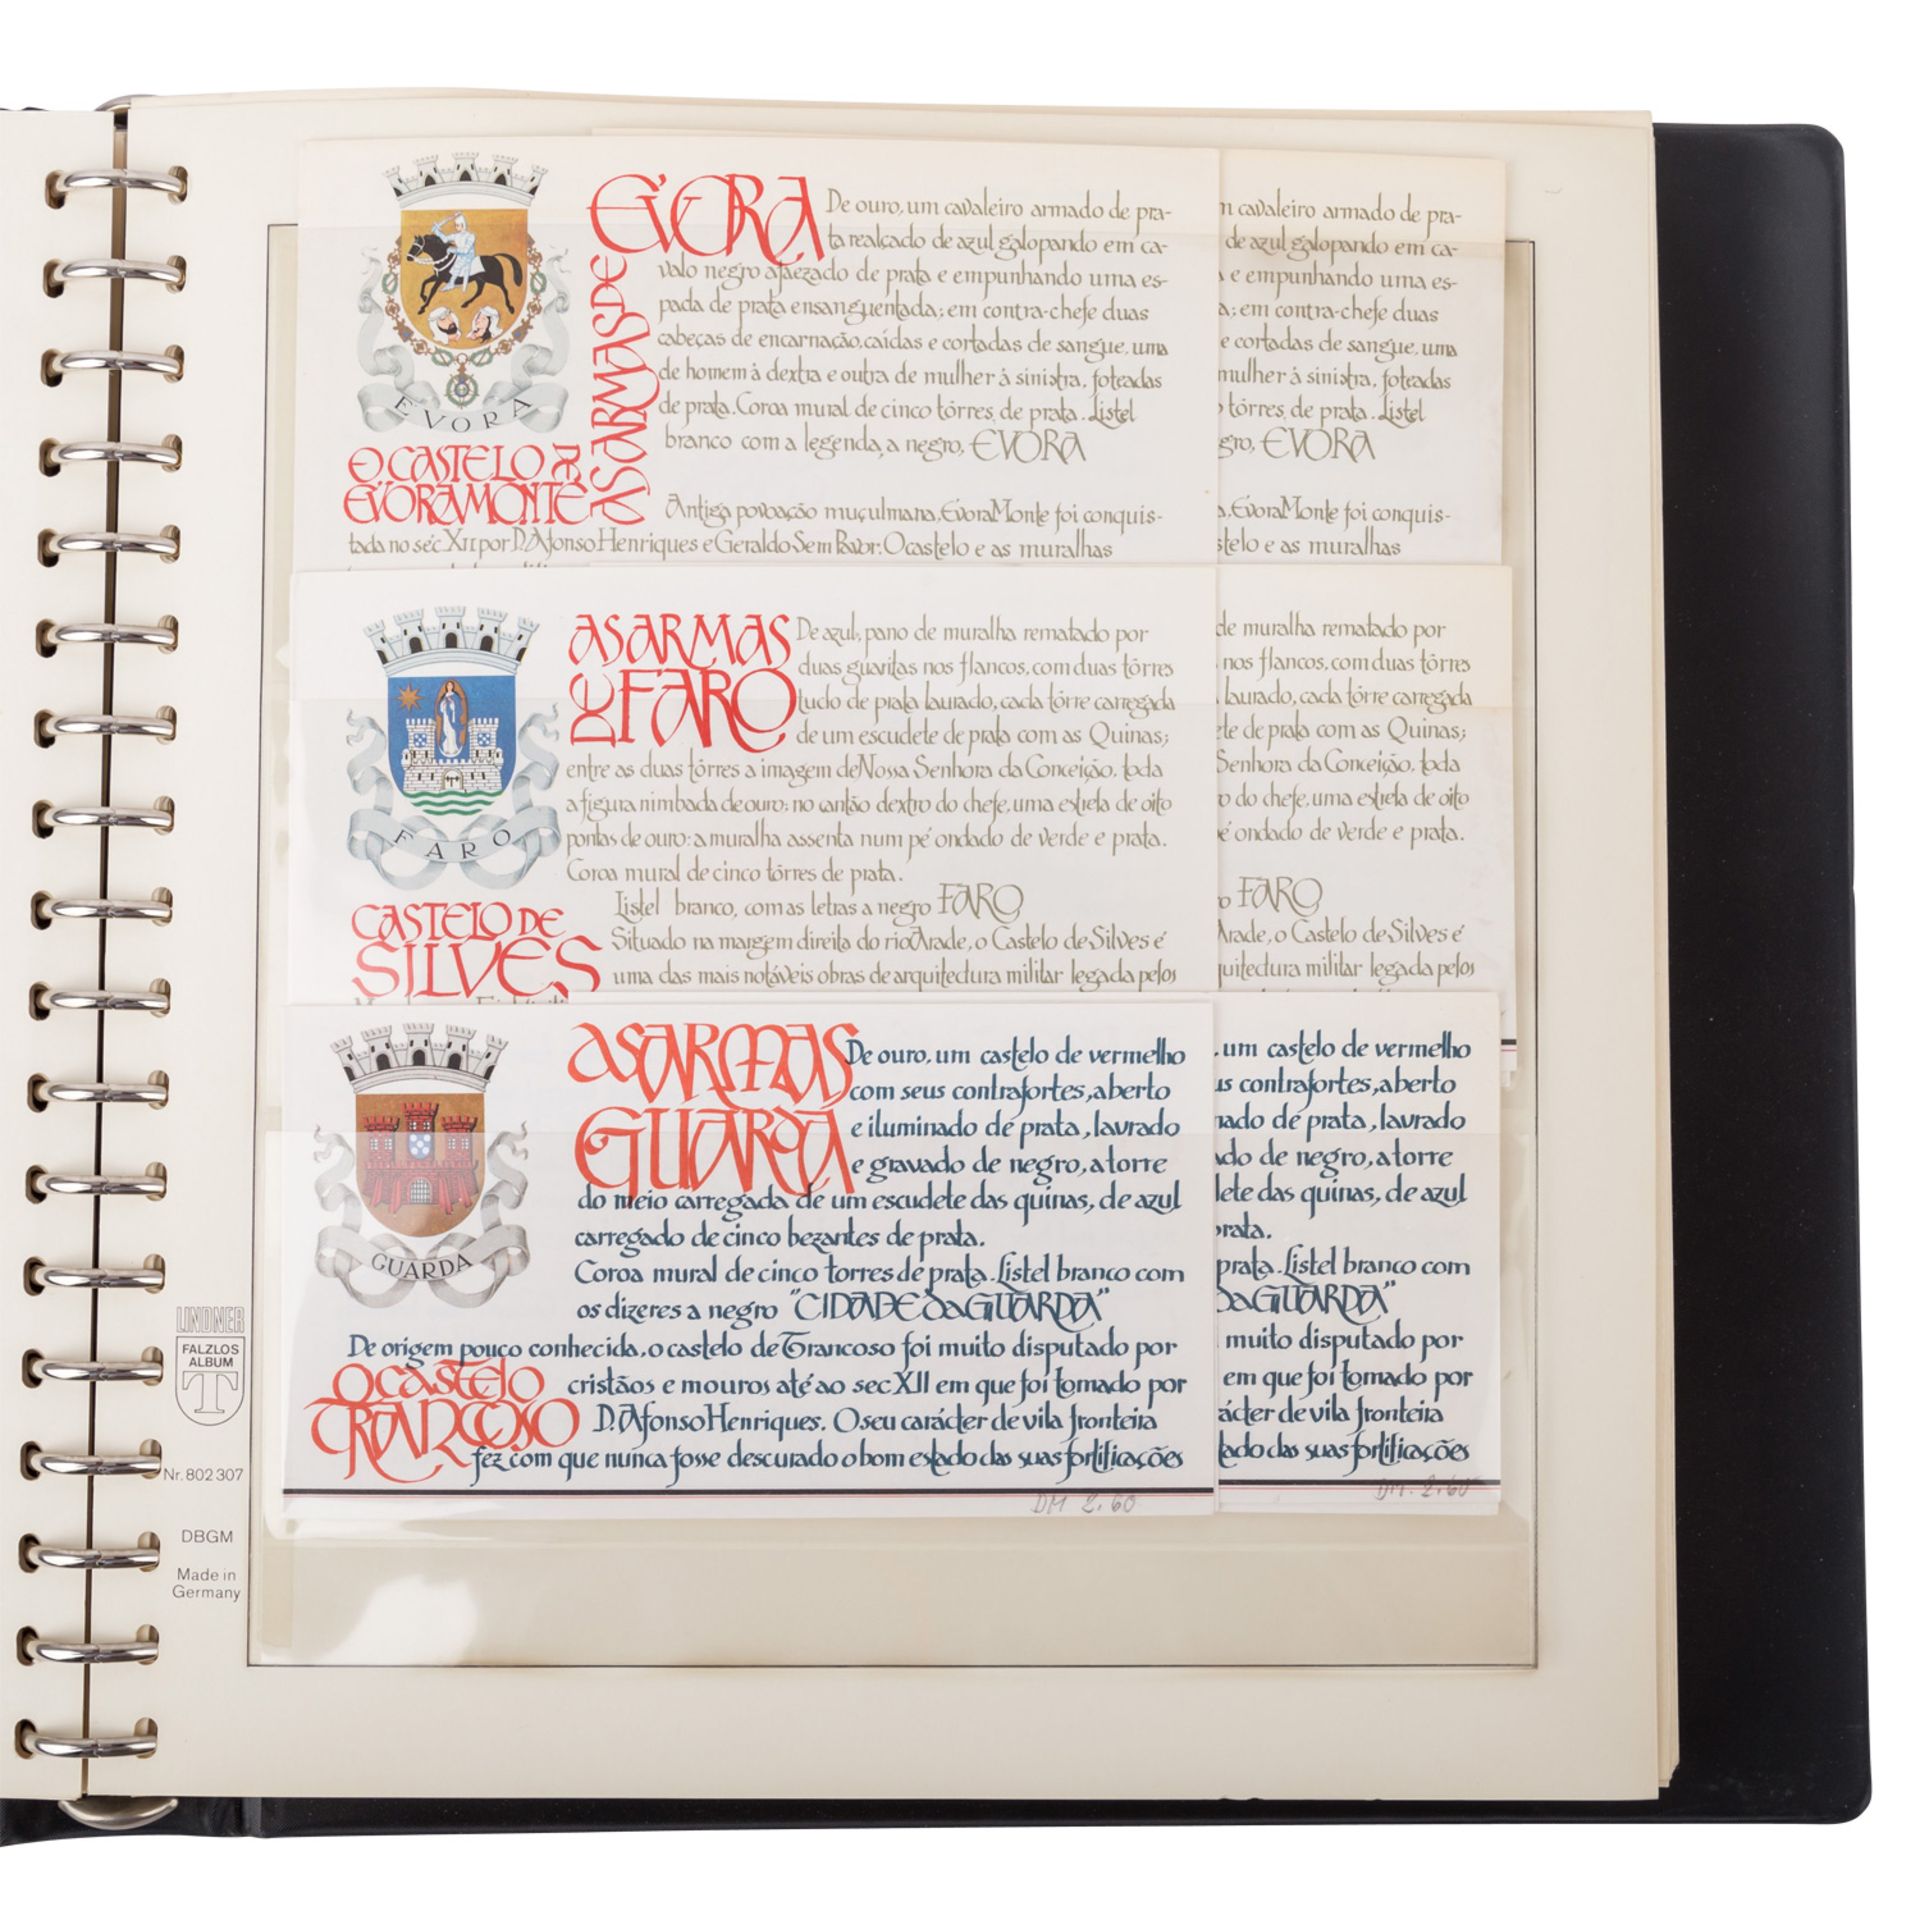 EVORA
AS ARMAS DE
EVORA
De ouro, um cavaleiro armado de pra-
ta realçado de azul galopando em ca-
valo negro ajaezado de prata e empunhando uma es-
pada de prata ensanguentada; em contra-chefe duas
cabeças de encarnação, caídas e cortadas de sangue, uma
de homem à dextra e outra de mulher à sinistra, foteadas
de prata. Coroa mural de cinco tôrres de prata. Listel
branco com a legenda, a negro, EVORA
O CASTELO DE
EVORAMONTE
Antiga povoação muçulmana, EvoraMonte foi conquis-
tada no séc. XII por D. Afonso Henriques e Geraldo Sem Pavor. O castelo e as muralhas
m cavaleiro armado de pra-
de azul galopando em ca-
e empunhando uma es-
a; em contra-chefe duas
e cortadas de sangue, uma
mulher à sinistra, foteadas
tôrres de prata. Listel
gro, EVORA
a, EvoraMonte foi conquis-
stelo e as muralhas
FARO
AS ARMAS
DE FARO
De azul, pano de muralha rematado por
duas guaritas nos flancos, com duas tôrres
tudo de prata laurado, cada tôrre carregada
de um escudete de prata com as Quinas;
entre as duas tôrres a imagem de Nossa Senhora da Conceição, toda
a figura nimbada de ouro: no cantão dextro do chefe, uma estrela de oito
pontas de ouro: a muralha assenta num pé ondado de verde e prata.
Coroa mural de cinco tôrres de prata.
Listel branco, com as letras a negro FARO
CASTELO DE
SILVES
Situado na margem direita do rio Arade, o Castelo de Silves é
uma das mais notáveis obras de arquitectura militar legada pelos
de muralha rematado por
nos flancos, com duas tôrres
laurado, cada tôrre carregada
ete de prata com as Quinas;
Senhora da Conceição, toda
o do chefe, uma estrela de oito
é ondado de verde e prata.
o FARO
Arade, o Castelo de Silves é
quitectura militar legada pelos
GUARDA
AS ARMAS
GUARDA
De ouro, um castelo de vermelho
com seus contrafortes, aberto
e iluminado de prata, lavrado
e gravado de negro, a torre
do meio carregada de um escudete das quinas, de azul
carregado de cinco bezantes de prata.
Coroa mural de cinco torres de prata. Listel branco com
os dizeres a negro "CIDADE da GUARDA"
De origem pouco conhecida, o castelo de Trancoso foi muito disputado por
O CASTELO
TRANCOSO
cristãos e mouros até ao sec XII em que foi tomado por
D. Afonso Henriques. O seu carácter de vila fronteira
fez com que nunca fosse descurado o bom estado das suas fortificações
DM 2.60
. um castelo de vermelho
us contrafortes, aberto
nado de prata, lavrado
do de negro, a torre
lete das quinas, de azul
prata.
prata. Listel branco com
da GUARDA"
muito disputado por
em que foi tomado por
ácter de vila fronteira
tado das suas fortificações
DM. 2.60
LINDNER
FALZLOS
ALBUM
T
Nr. 802 307
DBGM
Made in
Germany